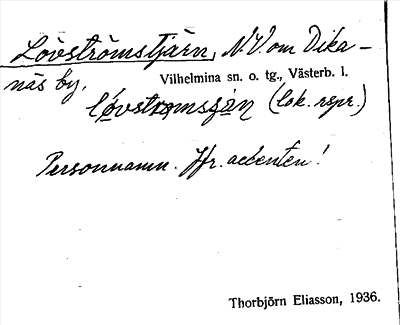 Lövströmstjärn, N.V. om Dika-
näs by.
Vilhelmina sn. o. tg., Västerb. l.
(lok. rspr.)
Personnamn. Jfr. accenten!
Thorbjörn Eliasson, 1936.